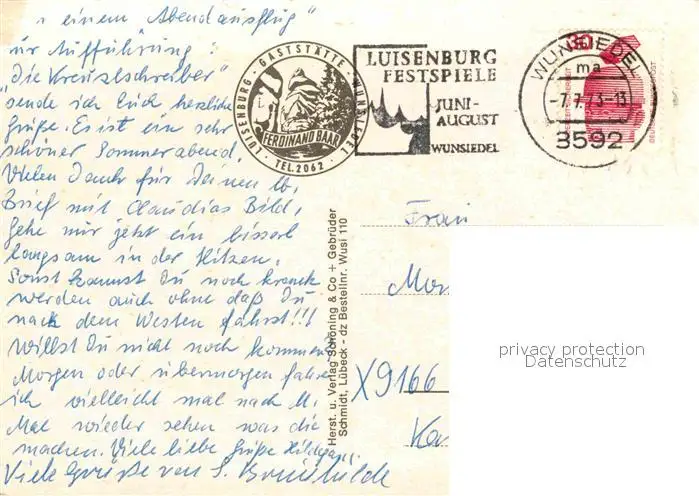 einem Abendausflug"
zur Aufführung:
"die Kreuzlschreiber"
sende ich Euch herzliche
Grüße. Es ist ein sehr
schöner Sommerabend.
Vielen Dank für Deinen lb.
Brief mit Claudias Bild.
Gehe mir jetzt ein bisserl
langsam in der Hitzen.
Sonst kannst Du noch krank
werden auch ohne daß Du
nach dem Westen fährst!!!
Willst Du nicht noch kommen?
Morgen oder übermorgen fahre
ich vielleicht mal nach M.
Mal wieder sehen was die
machen. Viele liebe Grüße
Viele Grüße von
LUISENBURG · GASTSTÄTTE · WUNSIEDEL
FERDINAND BAAR
· TEL. 2062 ·
LUISENBURG
FESTSPIELE
JUNI-
AUGUST
WUNSIEDEL
30
WUNSIEDEL
ma
-7.7.73-13
3592
Herst. u. Verlag Schöning & Co + Gebrüder
Schmidt, Lübeck - dz Bestellnr. Wusi 110
Frau
X9166
privacy protection
Datenschutz